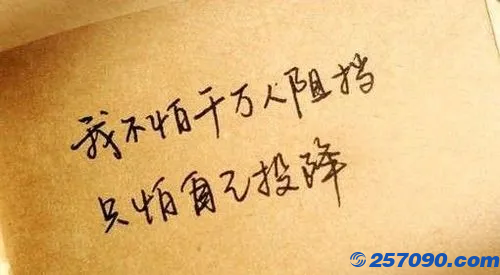 我不怕千万人阻挡
只怕自己投降
257090.com